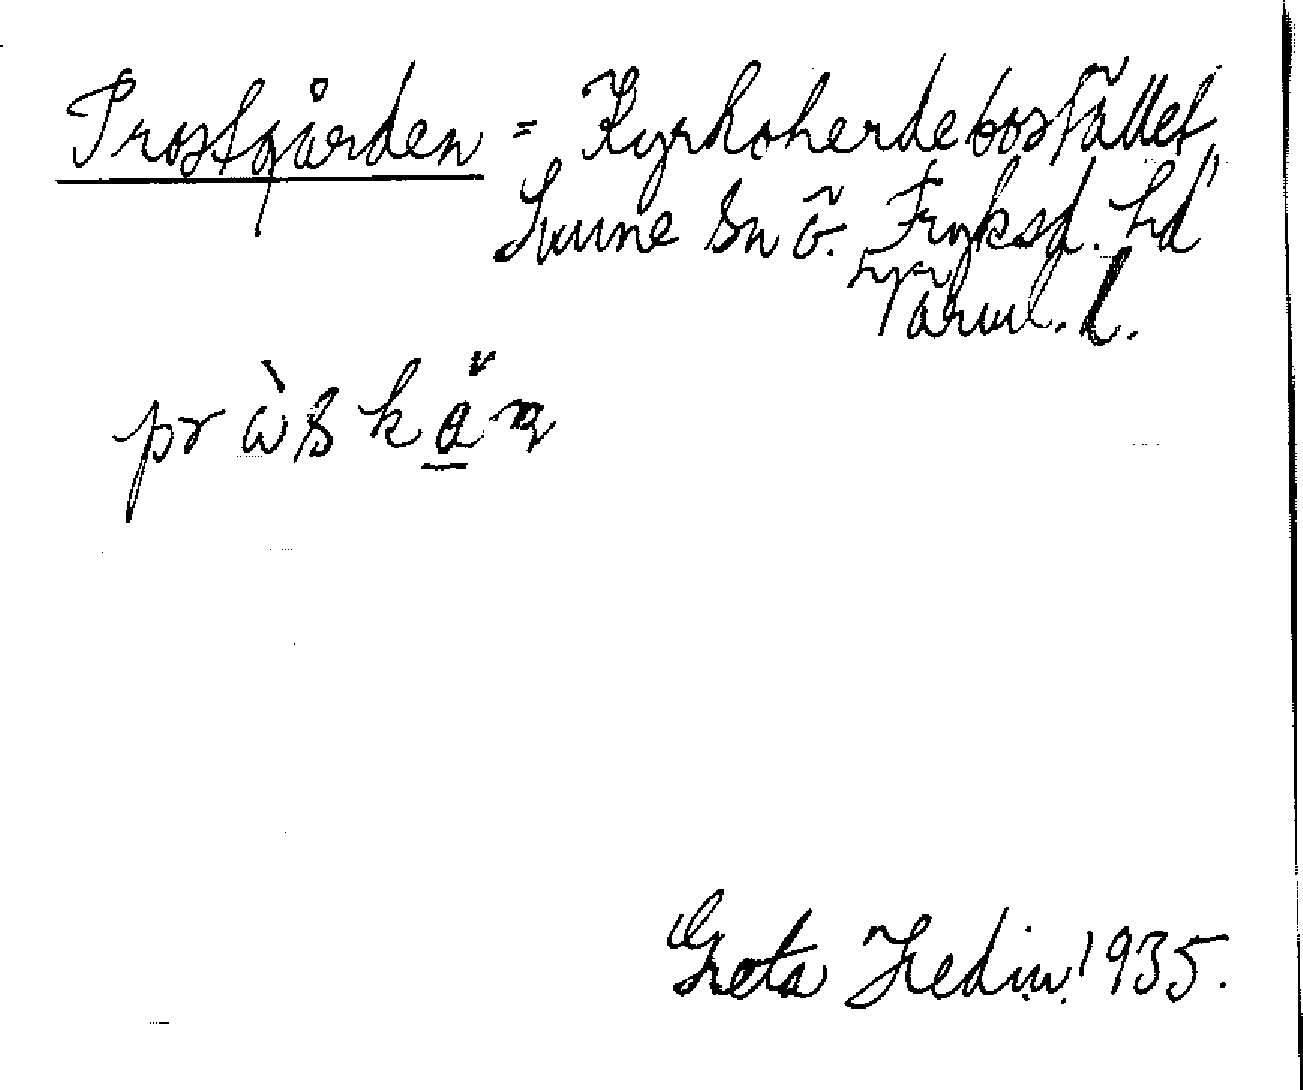 Prostgården = Kyrkoherdebostället
Sunne Sn Ö. Fryksd. hd
Värml. l.
pr ὼ s k a̲ ̈ n
Greta Hedin 1935.